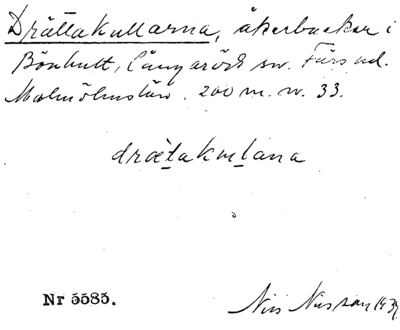 Drättakullarna, åkerbackar i
Bönhult, Långaröds sn. Färs hd.
Malmöhus län. 200 m. n. 33.
drætakulana
Nr 5585.
Nils Nilsson 1939